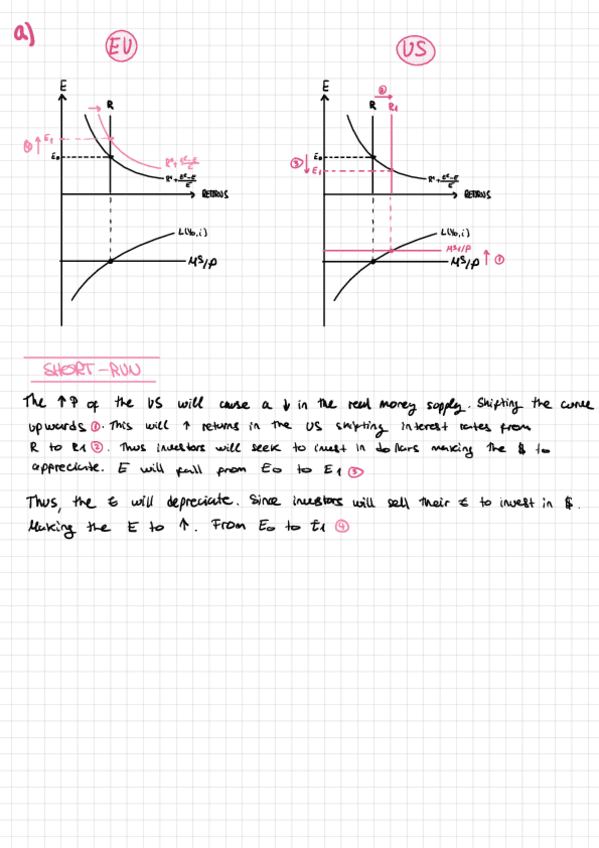 a)
EU
US
E
R
E1
E0
④
R*+ E^e-E/E
R*+ E^e-E/E
RETURNS
L(Y0,i)
MS/P
E
②
R
R1
③
E0
E1
R*+ E^e-E/E
RETURNS
L(Y0,i)
MS1/P
MS/P
①
SHORT-RUN
The ↑P of the US will cause a ↓ in the real money supply. Shifting the curve
upwards ①. This will ↑ returns in the US shifting interest rates from
R to R1 ②. Thus investors will seek to invest in dollars making the $ to
appreciate. E will fall from E0 to E1 ③
Thus, the € will depreciate. Since investors will sell their € to invest in $.
Making the E to ↑. From E0 to E1 ④